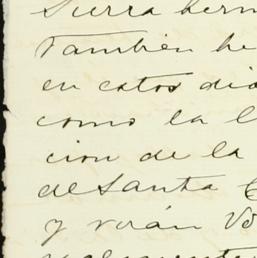 Sierra herm
También he
en estos dia
como la l
cion de la
de Santa C
y verán Vd